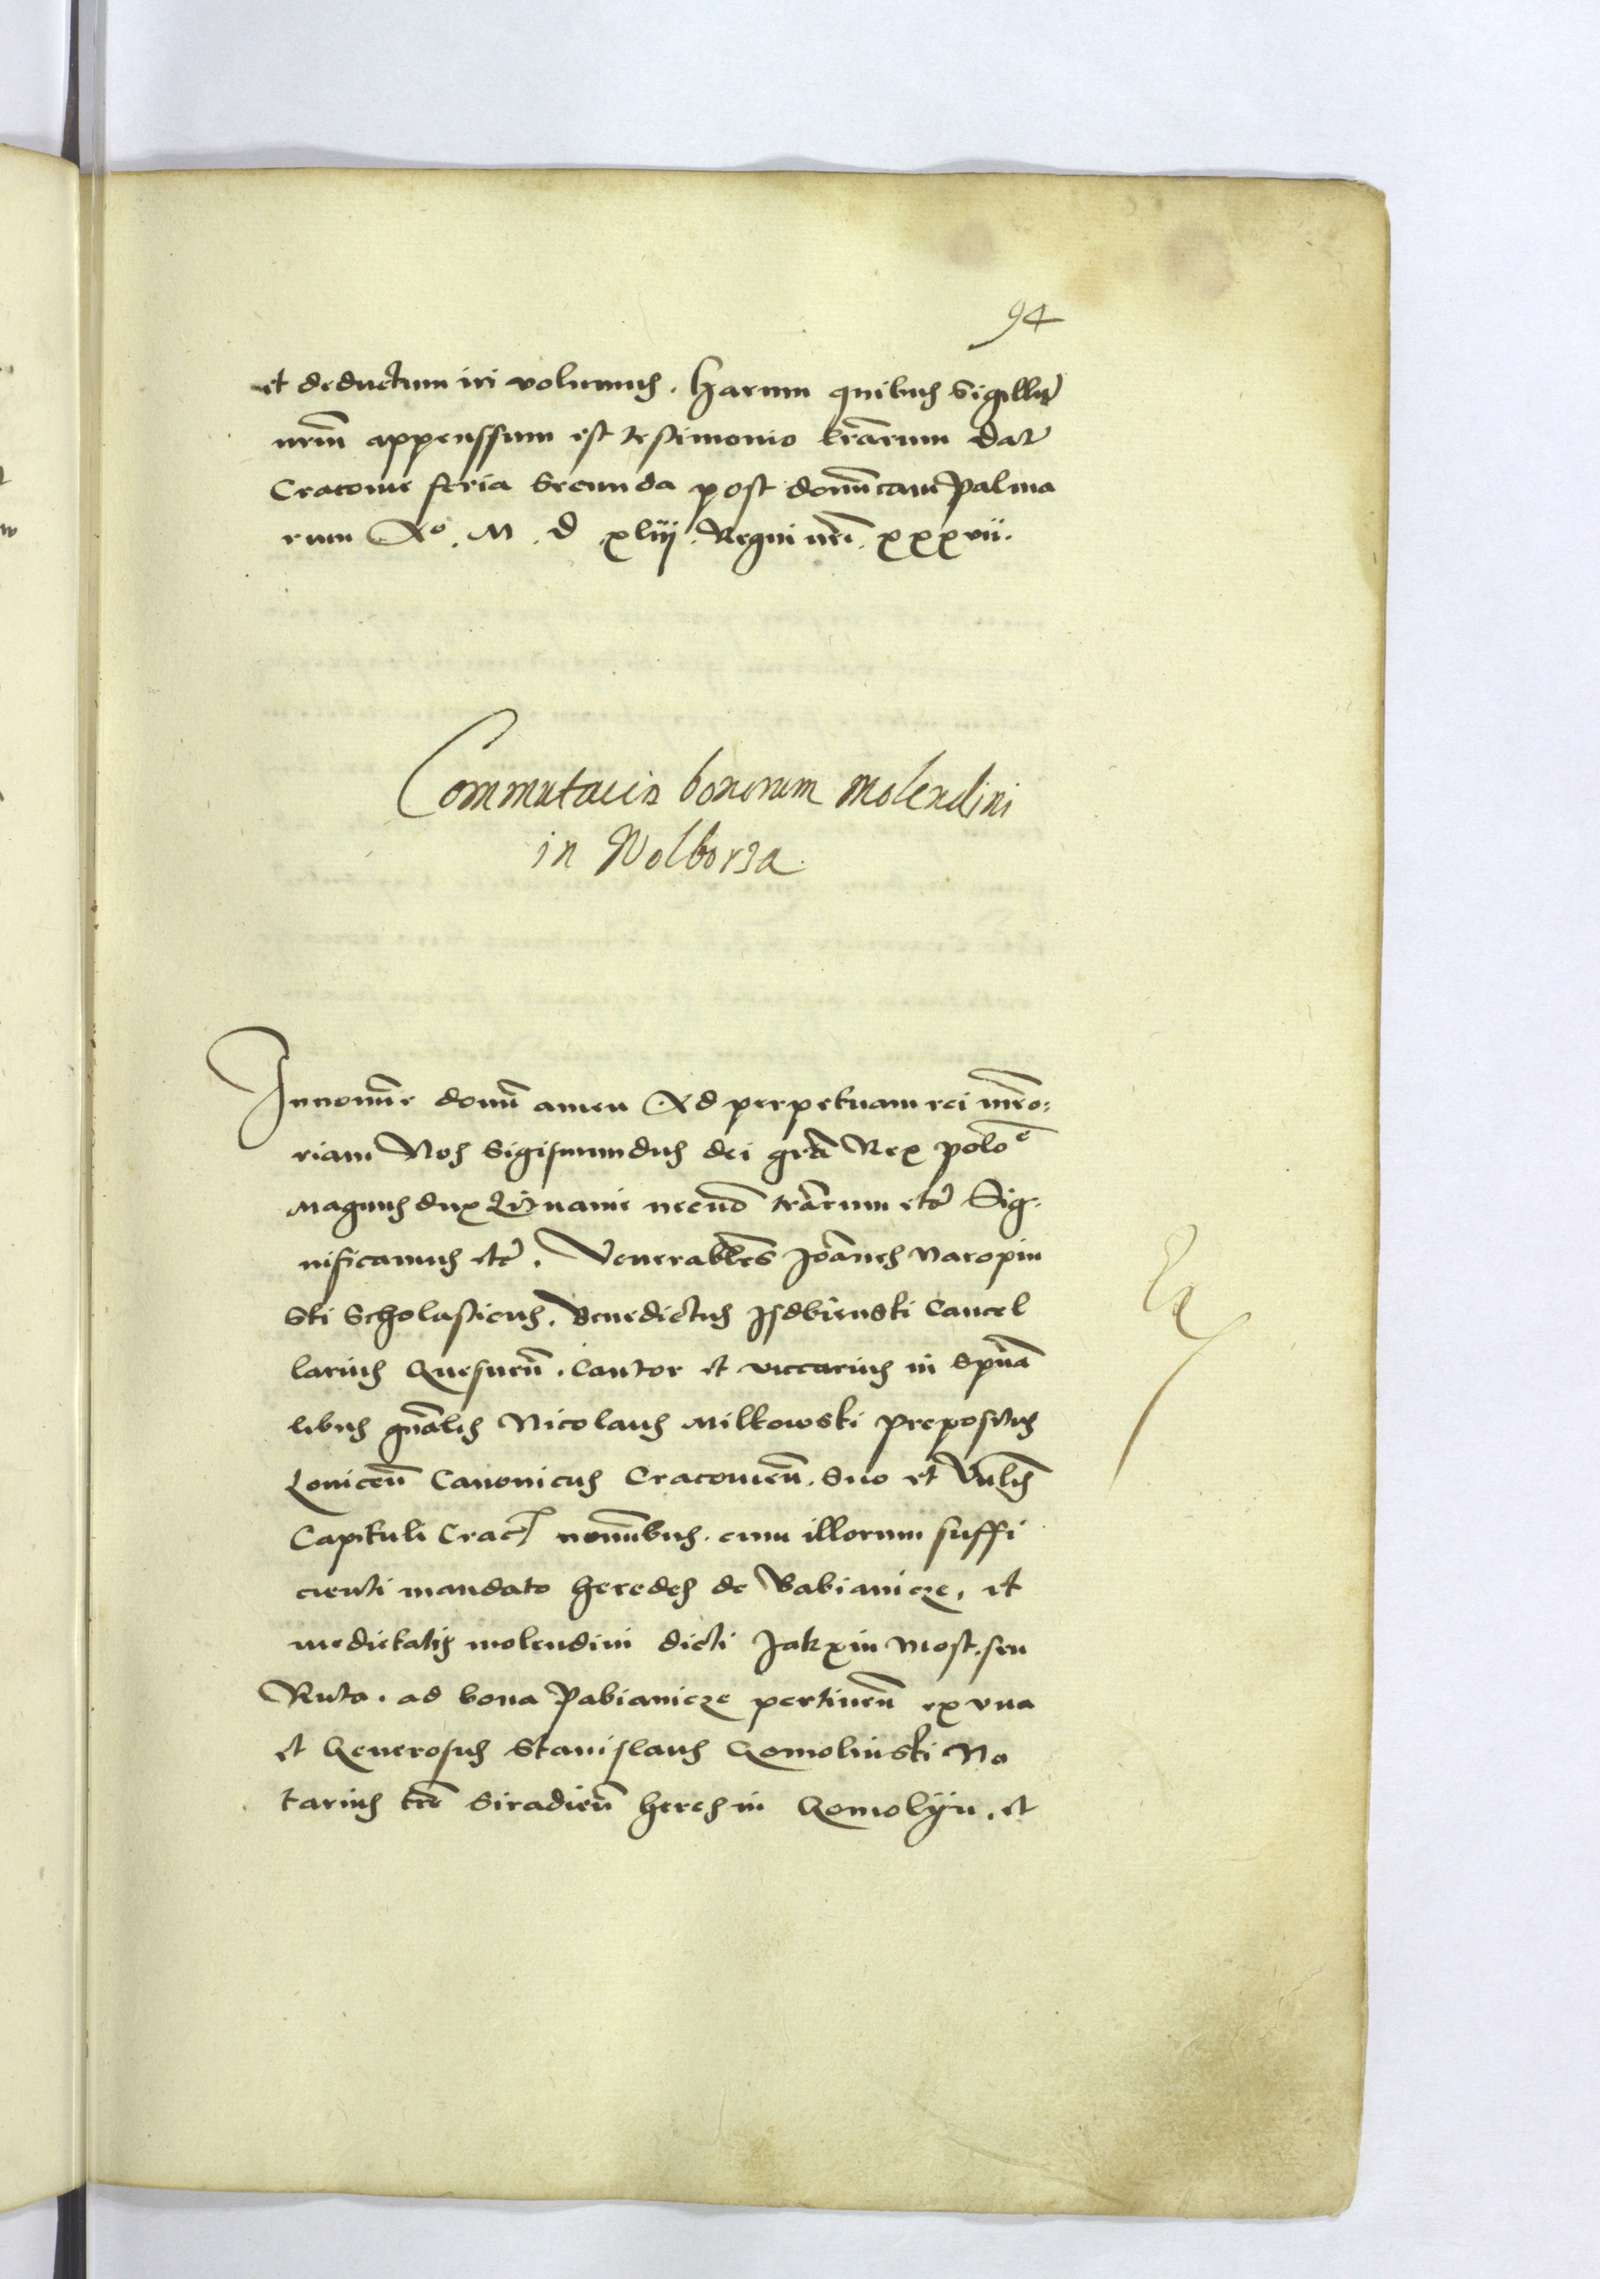 94
et deductum iri volumus. Harum quibus Sigillum
nrm̄ appenssum est testimonio lrārum Dat̄
Cracovie feria Secunda post domīcam Palma
rum Ao. M. D xliij. Regni nrī. xxxvii.
Commutacio bonorum molendini
in Wolborza
In nomīe domī amen Ad perpetuam rei mēo:
riam Nos Sigismundus dei grā Rex polōe
Magnus dux Litvanie necnō trārum etc̄ Sig-
nificamus etc̄. Venerabl̄es Joānes Naropin
ski Scholasticus. Benedictus Isdbienski Cancel
larius Gnesneñ. Cantor et viccarius in Spūa
libus gnālis Nicolaus Milkowski prepositus
Loviceñ Canonicus Cracovieñ. Suo et Vnl̄is
Capituli Crac̄ nomībus. cum illorum suffi
cienti mandato heredes de Babianicze. et
medietatis molendini dicti Jakxin Most. seu
Ruta. ad bona Pabianicze pertineñ ex vna
et Generosus Stanislaus Gomolinski No
tarius trē Siradieñ heres in Gomolyn. et